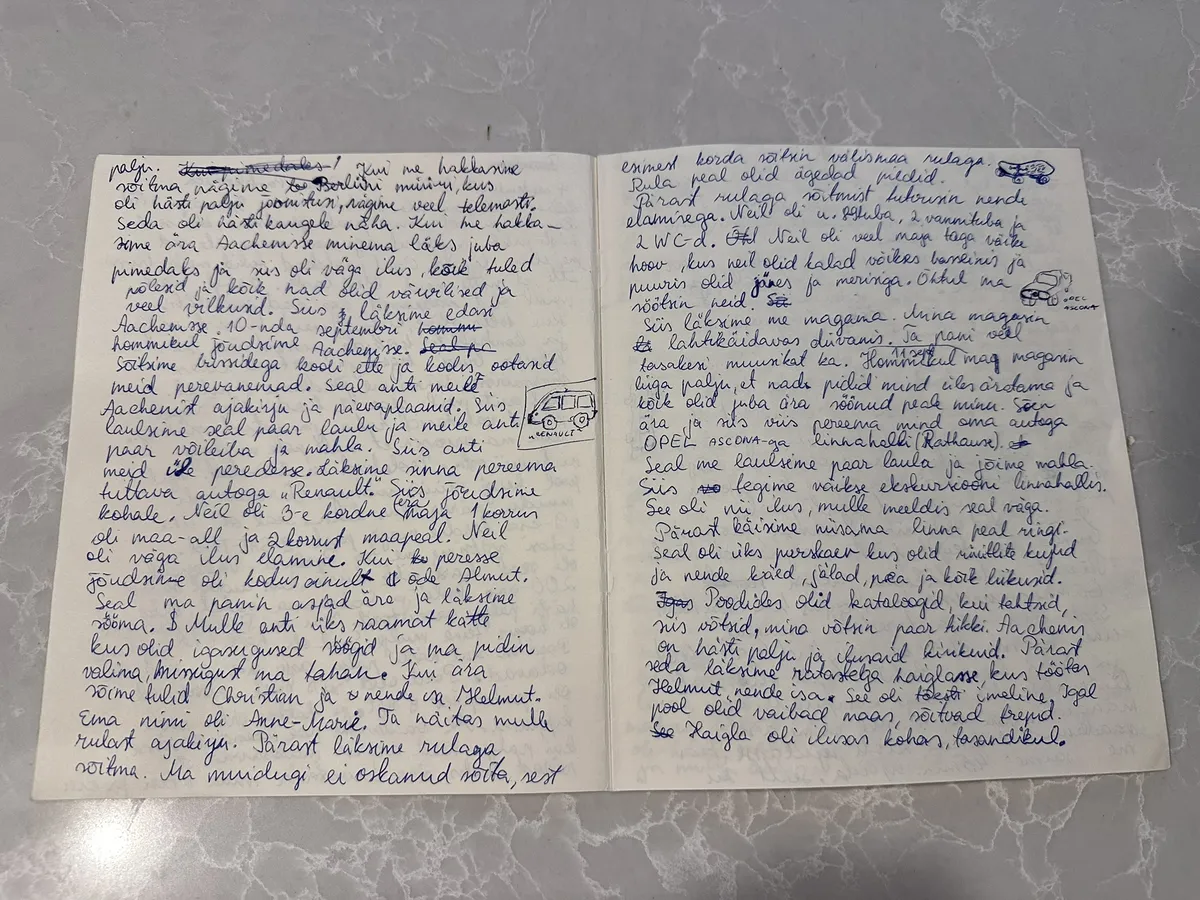 palju. Kui me hakkasime
sõitma, nägime Berliini müüri, kus
oli hästi palju joonistusi, nägime veel telemasti.
Seda oli hästi kaugele näha. Kui me hakka-
sime ära Aachenisse minema läks juba
pimedaks ja siis oli väga ilus, kõik tuled
põlesid ja kõik nad olid värvilised ja
veel vilkusid. Siis läksime edasi
Aachenisse. 10-nda septembri
hommikul jõudsime Aachenisse.
Sõitsime bussidega kooli ette ja kodus ootasid
meid perevanemad. Seal anti meile
Aachenist ajakirju ja päevaplaanid. Siis
laulsime seal paar laulu ja meile anti
paar võileiba ja mahla. Siis anti
meid peredesse. Läksime sinna pereema
tuttava autoga „Renault". Siis jõudsime
kohale. Neil oli 3-e kordne maja 1 korrus
oli maa-all ja 2 korrust maapeal. Neil
oli väga ilus elamine. Kui peresse
jõudsime oli kodus ainult õde Almut.
Seal ma panin asjad ära ja läksime
sööma. Mulle anti üks raamat kätte
kus olid igasugused söögid ja ma pidin
valima, missugust ma tahan. Kui ära
sõime tulid Christian ja nende isa, Helmut.
Ema nimi oli Anne-Marie. Ta näitas mulle
rulast ajakirju. Pärast läksime rulaga
sõitma. Ma muidugi ei oskanud sõita, sest
„RENAULT"
esimest korda sõitsin välismaa rulaga.
Rula peal olid ägedad pildid.
Pärast rulaga sõitmist tutvusin nende
elamisega. Neil oli u. tuba, 2 vannituba ja
2 WC-d. Neil oli veel maja taga väike
hoov, kus neil olid kalad väikses basseinis ja
puuris olid jänes ja merisiga. Õhtul ma
söötsin neid.
OPEL
ASCONA
Siis läksime me magama. Mina magasin
lahtikäidavas diivanis. Ta pani veel
tasakesi muusikat ka. Hommikul ma magasin
11 sept
liiga palju, et nad pidid mind üles äratama ja
kõik olid juba ära söönud peale minu. Sõin
ära ja siis viis pereema mind oma autoga
OPEL ASCONA-ga linnahalli (Rathause).
Seal me laulsime paar laulu ja jõime mahla.
Siis tegime väikse ekskursiooni linnahallis.
See oli nii ilus, mulle meeldis seal väga.
Pärast käisime niisama linna peal ringi.
Seal oli üks purskaev kus olid kujud
ja nende käed, jalad, pea ja kõik liikusid.
Poodides olid kataloogid, kui tahtsid,
siis võtsid, mina võtsin paar tükki. Aachenis
on hästi palju ja ilusaid kirikuid. Pärast
seda läksime ratastega haiglasse, kus töötas
Helmut, nende isa. See oli imeline, Igal
pool olid vaibad maas, sõitvad trepid.
Haigla oli ilusas kohas, tasandikul.